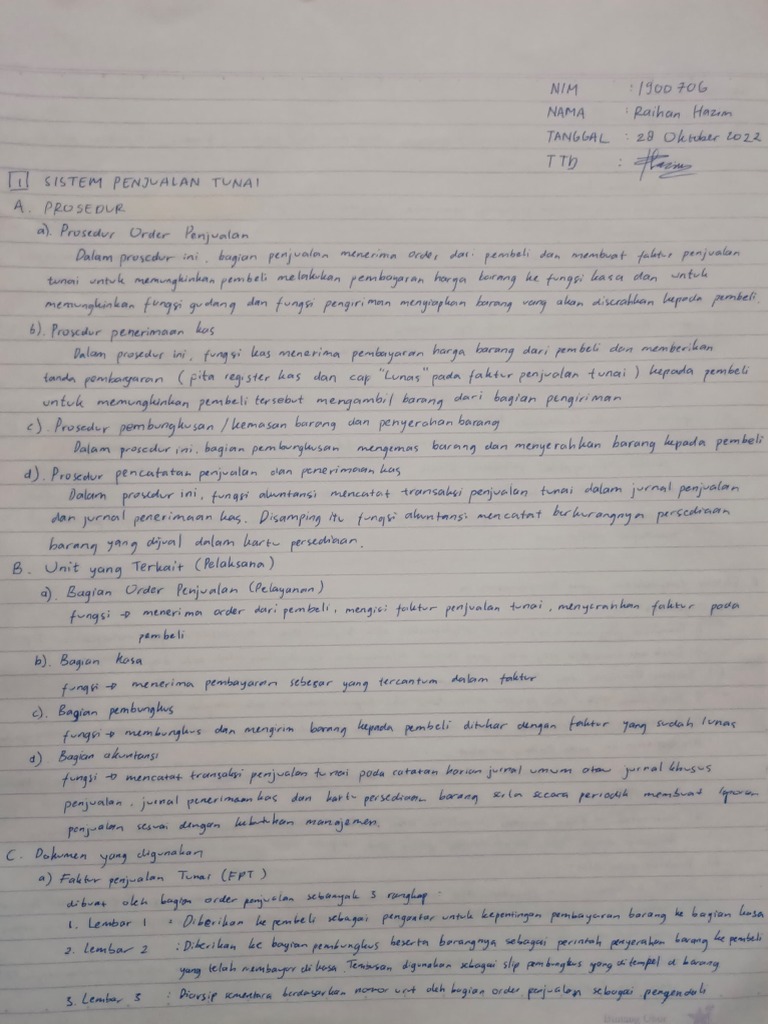 NIM : 1900706
NAMA : Raihan Hazim
TANGGAL : 28 Oktober 2022
TTD :
1 SISTEM PENJUALAN TUNAI
A. PROSEDUR
a). Prosedur Order Penjualan
Dalam prosedur ini, bagian penjualan menerima order dari pembeli dan membuat faktur penjualan
tunai untuk memungkinkan pembeli melakukan pembayaran harga barang ke fungsi kasa dan untuk
memungkinkan fungsi gudang dan fungsi pengiriman menyiapkan barang yang akan diserahkan kepada pembeli.
b). Prosedur penerimaan kas
Dalam prosedur ini, fungsi kas menerima pembayaran harga barang dari pembeli dan memberikan
tanda pembayaran (pita register kas dan cap "Lunas" pada faktur penjualan tunai) kepada pembeli
untuk memungkinkan pembeli tersebut mengambil barang dari bagian pengiriman
c). Prosedur pembungkusan / kemasan barang dan penyerahan barang
Dalam prosedur ini, bagian pembungkusan mengemas barang dan menyerahkan barang kepada pembeli
d). Prosedur pencatatan penjualan dan penerimaan kas
Dalam prosedur ini, fungsi akuntansi mencatat transaksi penjualan tunai dalam jurnal penjualan
dan jurnal penerimaan kas. Disamping itu fungsi akuntansi mencatat berkurangnya persediaan
barang yang dijual dalam kartu persediaan.
B. Unit yang Terkait (Pelaksana)
a). Bagian Order Penjualan (Pelayanan)
fungsi → menerima order dari pembeli, mengisi faktur penjualan tunai, menyerahkan faktur pada
pembeli
b). Bagian Kasa
fungsi → menerima pembayaran sebesar yang tercantum dalam faktur
c). Bagian pembungkus
fungsi → membungkus dan mengirim barang kepada pembeli ditukar dengan faktur yang sudah lunas
d) Bagian akuntansi
fungsi → mencatat transaksi penjualan tunai pada catatan harian jurnal umum atau jurnal khusus
penjualan, jurnal penerimaan kas dan kartu persediaan barang serta secara periodik membuat laporan
penjualan sesuai dengan kebutuhan manajemen.
C. Dokumen yang digunakan
a) Faktur penjualan Tunai (FPT)
dibuat oleh bagian order penjualan sebanyak 3 rangkap.
1. Lembar 1 : Diberikan ke pembeli sebagai pengantar untuk kepentingan pembayaran barang ke bagian kasa
2. Lembar 2 : Diberikan ke bagian pembungkus beserta barangnya sebagai perintah penyerahan barang ke pembeli
yang telah membayar di kasa. Tembusan digunakan sebagai slip pembungkus yang ditempel di barang
3. Lembar 3 : Diarsip sementara berdasarkan nomor urut oleh bagian order penjualan sebagai pengendali